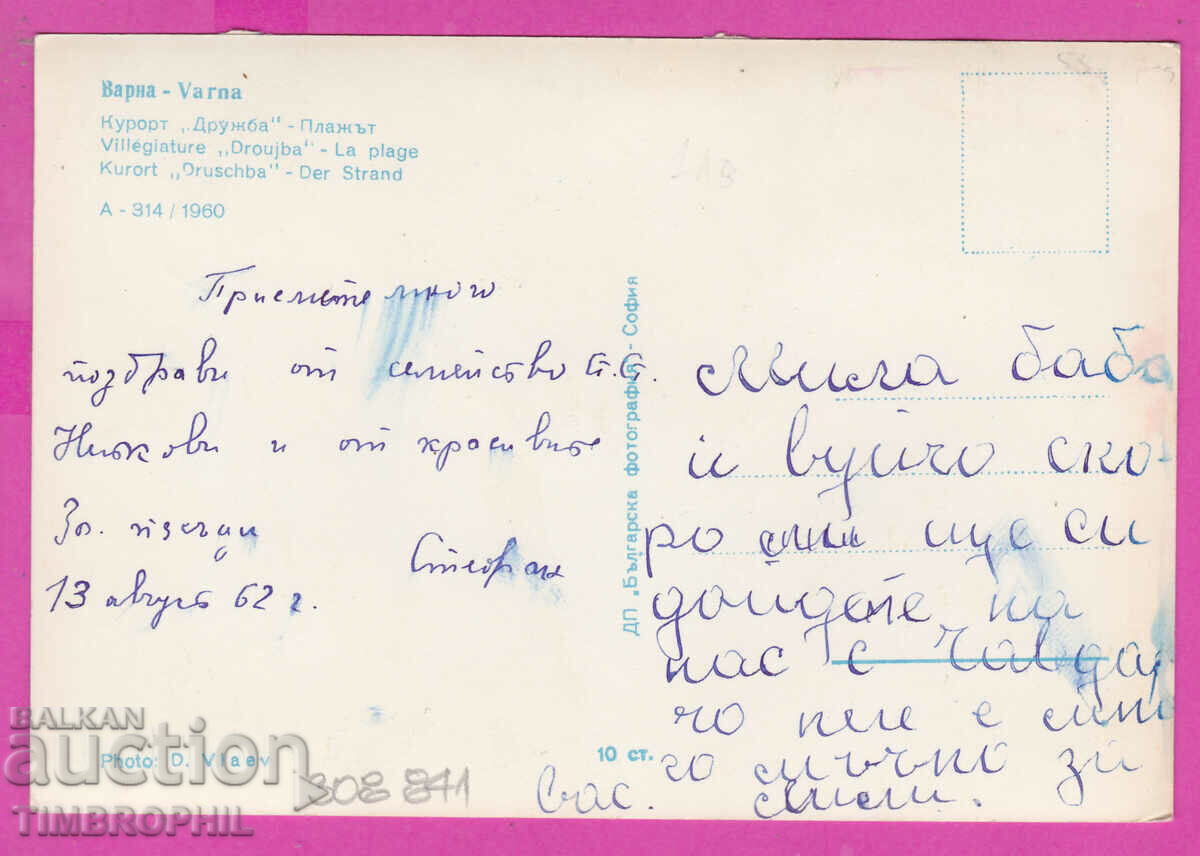 Варна - Varna
Курорт „Дружба" - Плажът
Villégiature „Droujba" - La plage
Kurort „Druschba" - Der Strand
А - 314 / 1960
Приемете много
поздрави от семейство
и от красивите
Зл. пясъци
13 август 62 г.
Стефан
ДП „Българска фотография" - София
Мила баба
и вуйчо ско-
ро ще си
дойдете на
нас с Чавдар
че е мно
го мъчно за
вас.
Photo: D. Vlaev
10 ст.
308 841
BALKAN
auction
TIMBROPHIL